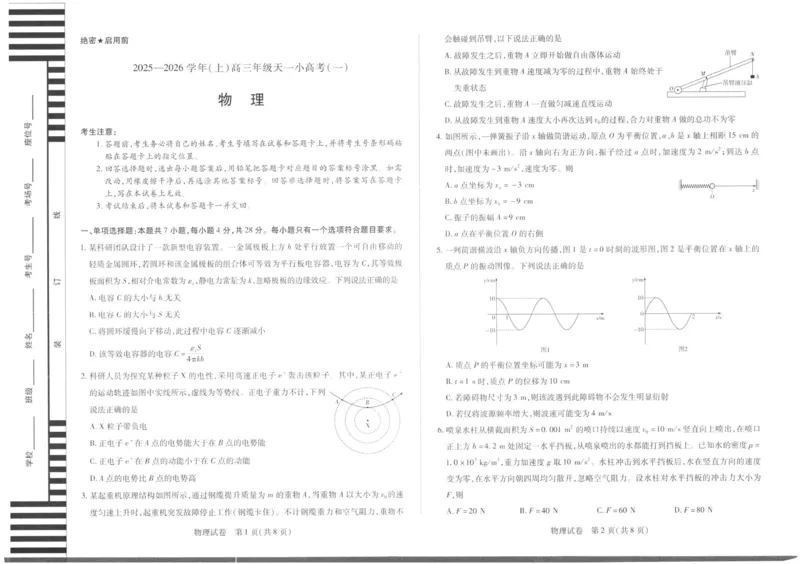 绝密★启用前
2025—2026 学年(上)高三年级天一小高考(一)
物 理
考生注意:
1. 答题前,考生务必将自己的姓名、考生号填写在试卷和答题卡上,并将考生号条形码粘
贴在答题卡上的指定位置。
2. 回答选择题时,选出每小题答案后,用铅笔把答题卡对应题目的答案标号涂黑。如需
改动,用橡皮擦干净后,再选涂其他答案标号。回答非选择题时,将答案写在答题卡
上,写在本试卷上无效。
3. 考试结束后,将本试卷和答题卡一并交回。
一、单项选择题:本题共 7 小题,每小题 4 分,共 28 分。每小题只有一个选项符合题目要求。
1. 某科研团队设计了一款新型电容装置。一金属极板上方 h 处平行放置一个可自由移动的
轻质金属圆环,若圆环和该金属极板的组合体可等效为平行板电容器,电容为 C,其等效极
板面积为 S,相对介电常数为 εr,静电力常量为 k,忽略极板的边缘效应。下列说法正确的是
A. 电容 C 的大小与 h 无关
B. 电容 C 的大小与 S 无关
C. 将圆环缓慢向下移动,此过程中电容 C 逐渐减小
D. 该等效电容器的电容 C = εrS/4πkh
2. 科研人员为探究某种粒子 X 的电性,采用高速正电子 e⁺ 轰击该粒子。其中,某正电子 e⁺
的运动轨迹如图中实线所示,虚线为等势线。正电子重力不计,下列
说法正确的是
A. X 粒子带负电
B. 正电子 e⁺ 在 A 点的电势能大于在 B 点的电势能
C. 正电子 e⁺ 在 B 点的动能小于在 C 点的动能
D. A 点的电势比 B 点的电势高
A
B
C
X
3. 某起重机原理结构如图所示,通过钢缆提升质量为 m 的重物 A,当重物 A 以大小为 v₀ 的速
度匀速上升时,起重机突发故障停止工作(钢缆卡住)。不计钢缆重力和空气阻力,重物不
物理试卷 第 1 页(共 8 页)
会触碰到吊臂,以下说法正确的是
A. 故障发生之后,重物 A 立即开始做自由落体运动
B. 从故障发生到重物 A 速度减为零的过程中,重物 A 始终处于
失重状态
C. 故障发生之后,重物 A 一直做匀减速直线运动
D. 从故障发生到重物 A 速度大小再次达到 v₀ 的过程,合力对重物 A 做的总功不为零
吊臂
N
M
A
吊臂液压缸
O
4. 如图所示,一弹簧振子沿 x 轴做简谐运动,原点 O 为平衡位置,a、b 是 x 轴上相距 15 cm 的
两点(图中未画出)。沿 x 轴向右为正方向,振子经过 a 点时,加速度为 2 m/s²;到达 b 点
时,加速度为 −3 m/s²,速度为零。则
A. a 点坐标为 xa = −3 cm
B. b 点坐标为 xb = −9 cm
C. 振子的振幅 A = 9 cm
D. a 点在平衡位置 O 的右侧
O
x
5. 一列简谐横波沿 x 轴负方向传播,图 1 是 t = 0 时刻的波形图,图 2 是平衡位置在 x 轴上的
质点 P 的振动图像。下列说法正确的是
y/cm
10
0
1
−10
x/m
图1
y/cm
10
0
2
−10
t/s
图2
A. 质点 P 的平衡位置坐标可能为 x = 3 m
B. t = 1 s 时,质点 P 的位移为 10 cm
C. 若障碍物尺寸为 3 m,则该波遇到此障碍物不会发生明显衍射
D. 若仅将波源频率增大,则波速可能变为 4 m/s
6. 喷泉水柱从横截面积为 S = 0.001 m² 的喷口持续以速度 v₀ = 10 m/s 竖直向上喷出,在喷口
正上方 h = 4.2 m 处固定一水平挡板,从喷泉喷出的水都能打到挡板上。已知水的密度 ρ =
1.0×10³ kg/m³,重力加速度 g 取 10 m/s²。水柱冲击到水平挡板后,水在竖直方向的速度
变为零,在水平方向朝四周均匀散开,忽略空气阻力。设水柱对水平挡板的冲击力大小为
F,则
A. F = 20 N B. F = 40 N C. F = 60 N D. F = 80 N
物理试卷 第 2 页(共 8 页)
座位号
考场号
考生号
姓名
班级
学校
线
订
装